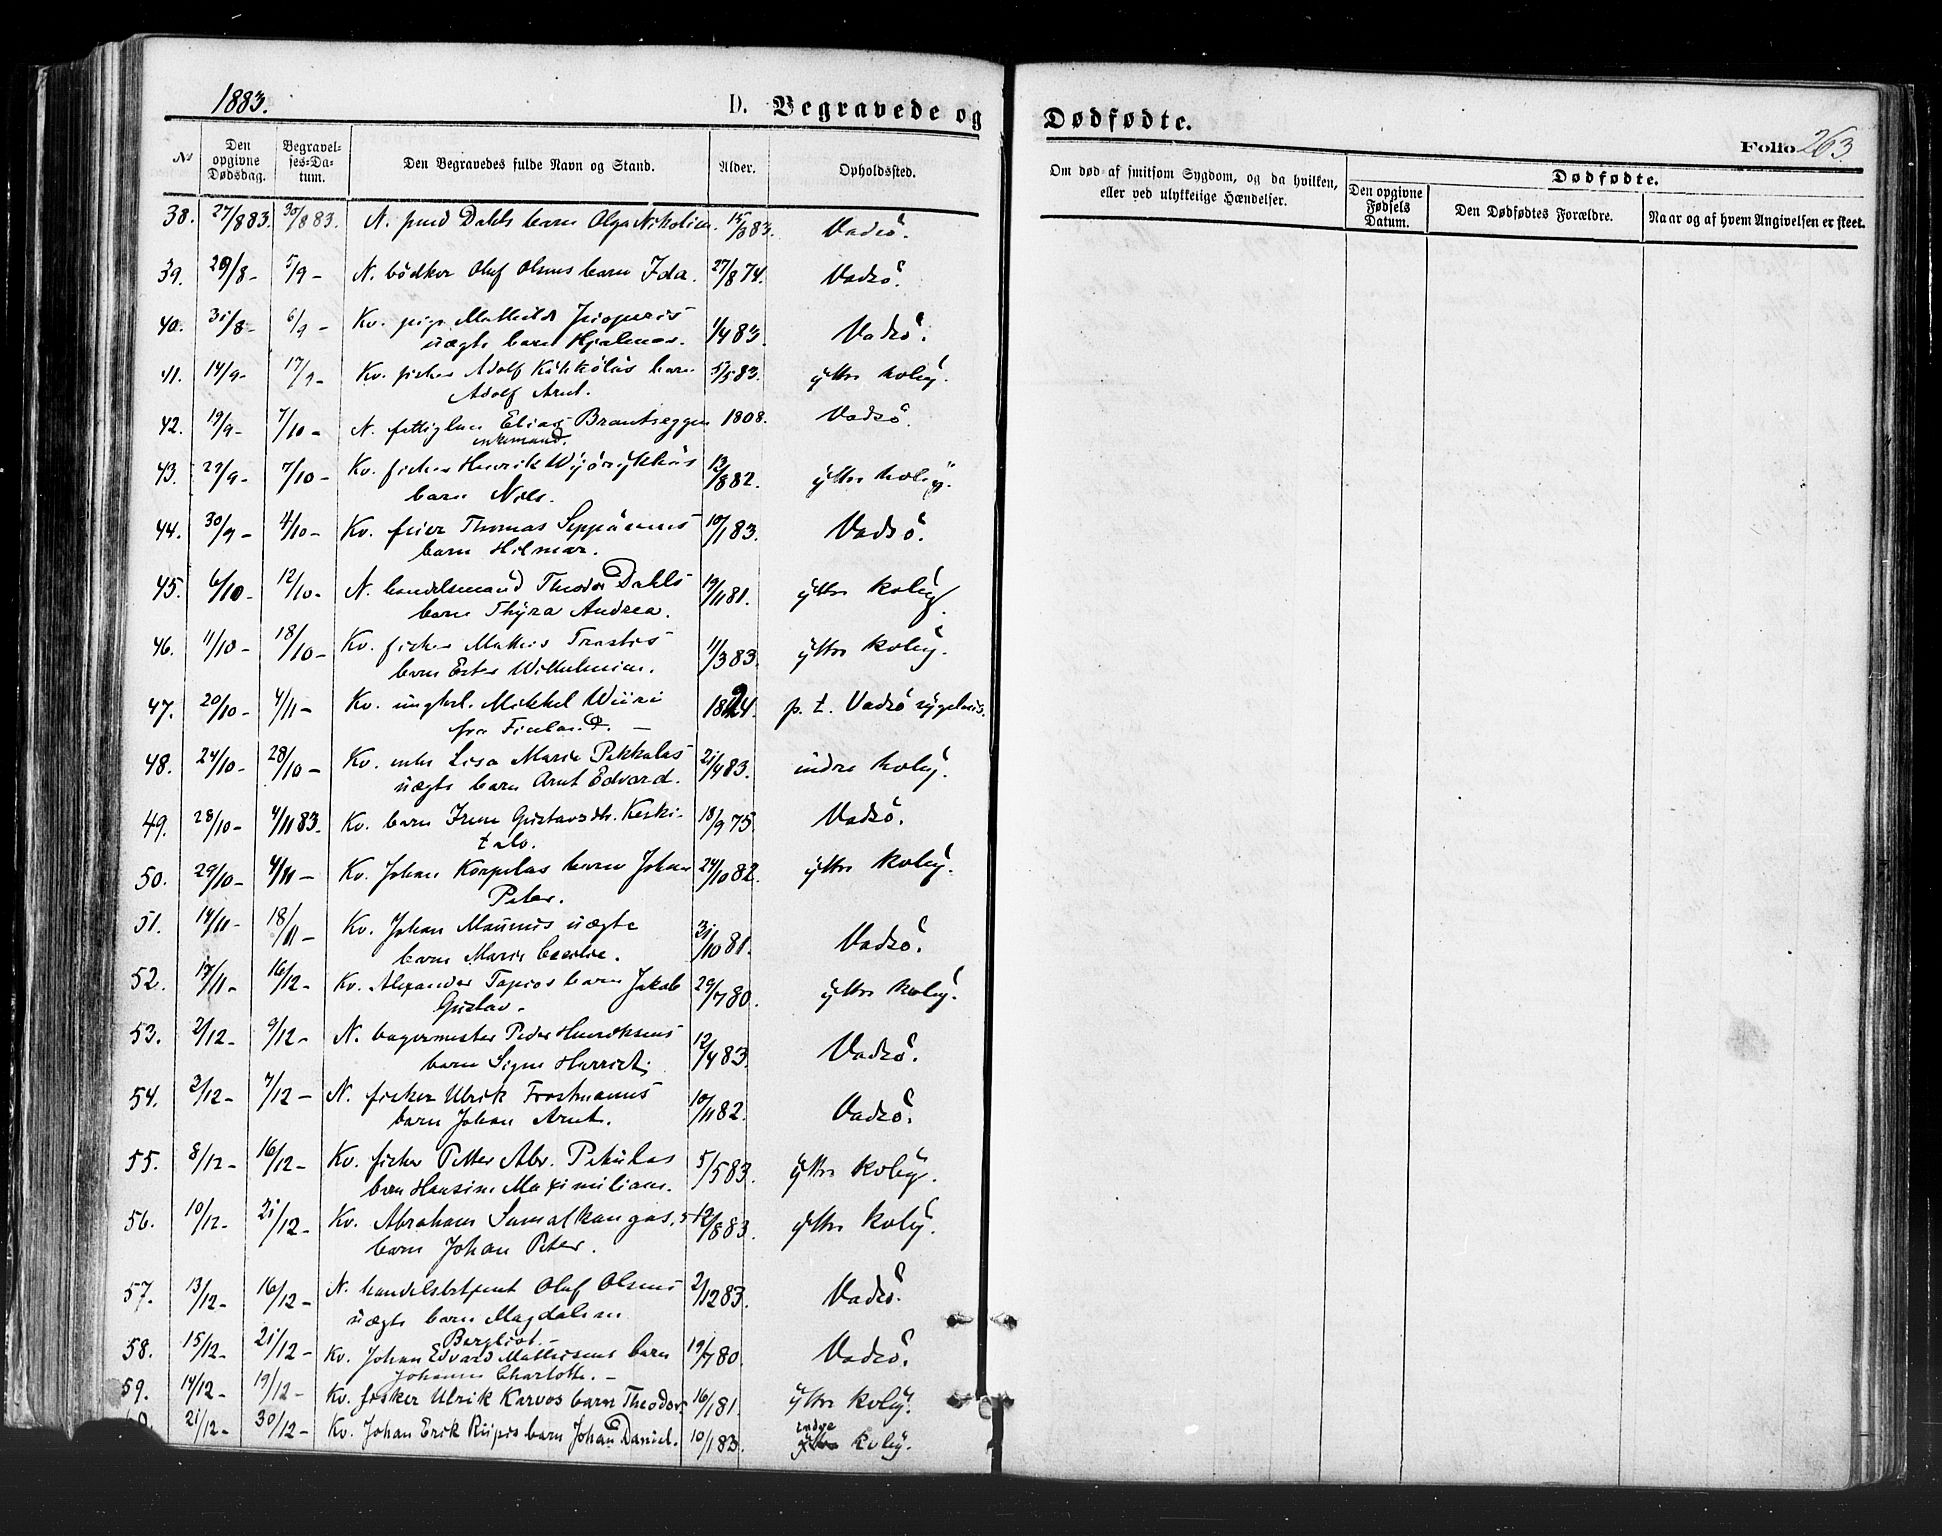 1883.
D. Begravede og
Dødfødte.
Folio 263
№
Den opgivne Dødsdag.
Begravelses-Datum.
Den Begravedes fulde Navn og Stand.
Alder.
Opholdssted.
Om død af smitsom Sygdom, og da hvilken, eller ved ulykkelige Hændelser.
Dødfødte.
Den opgivne Fødsels Datum.
Den Dødfødtes Forældre.
Naar og af hvem Angivelsen er skeet.
38. 27/8 83. 30/8 83. N. Dahls barn Olga Nikoline. 15/8 83. Vadsö.
39. 29/8 - 5/9 - N. bödker Oluf Olsens barn Ida. 27/8 74. Vadsö.
40. 31/8 - 6/9 - Kv. pige Mathilde
uægte barn Hjalmar. 1/4 83. Vadsö.
41. 14/9 - 17/9 - Kv. fisker Adolf barn 5/5 83. yttre koby.
Adolf Arnt.
42. 19/9 - 7/10 - N. fattiglem Elias 1808. Vadsö.
enkemand.
43. 7/10 - Kv. fisker Henrik
barn Nils. 12/8 82. yttre koby.
44. 30/9 - 4/10 - Kv. feier Thomas Seppänens 10/1 83. Vadsö.
barn Hilmar.
45. 6/10 - 12/10 - N. handelsmand Theodor Dahls 19/11 81. yttre koby.
barn Thyra Andrea.
46. 11/10 - 18/10 - Kv. fisker Mathis
barn Ester Wilhelmine. 11/3 83. yttre koby.
47. 20/10 - 4/11 - Kv. ungkarl. Mikkel Wiiri 1824. p. t. Vadsö sygehus.
fra Finland. -
48. 24/10 - 28/10 - Kv. enke Lisa Maria Pekkalas 21/4 83. indre koby.
uægte barn Arnt Edvard.
49. 28/10 - 4/11 83. Kv. barn Irene Gustavsdtr. Keski- 18/9 75. Vadsö.
talo.
50. 29/10 - 4/11 - Kv. Johan Korpelas barn Johan 24/10 82. yttre koby.
Peter.
51. 14/11 - 18/11 - Kv. Johan uægte
barn Marie Cecilie. 31/10 81. Vadsö.
52. 17/11 - 16/12 - Kv. Alexander Tapios barn Jakob 29/7 80. yttre koby.
Gustav -
53. 2/12 - 9/12 - N. bagermester Peder Henriksens 12/4 83. Vadsö.
barn Signe Harriet.
54. 2/12 - 7/12 - N. fisker Ulrik Forstmanns 10/11 82. Vadsö.
barn Johan Arnt.
55. 8/12 - 16/12 - Kv. fisker Petter Abr. Pekulas 5/5 83. yttre koby.
barn Hansine Maximiliane.
56. 10/12 - 21/12 - Kv. Abraham 12/8 83. yttre koby.
barn Johan Peter.
57. 13/12 - 16/12 - N. handelsbetjent Oluf Olsens 2/12 83. Vadsö.
uægte barn Magdalene
Bergliot. -
58. 15/12 - 21/12 - Kv. Johan Edvard Mathisens barn 19/7 80. Vadsö.
Johanne Charlotte. -
59. 14/12 - 19/12 - Kv. fisker Ulrik Karvos barn Theodor 16/1 81. yttre koby.
21/12 - 30/12 - Kv. Johan Erik Riipis barn Johan Daniel. 10/1 83. indre koby.